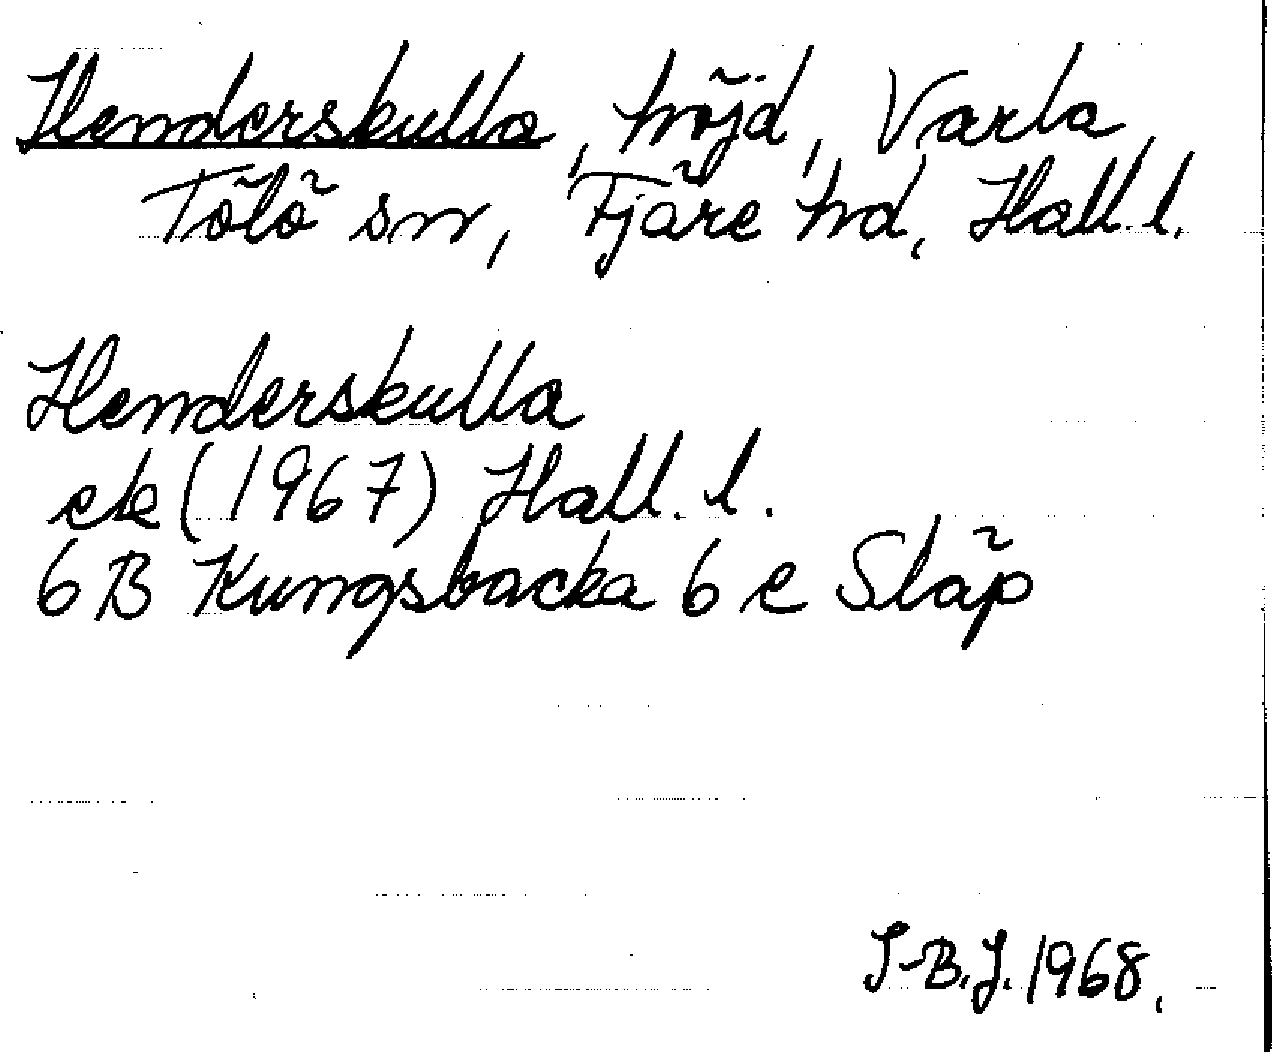 Henderskulla, höjd, Varla
Tölö sn, Fjäre hd, Hall. l.
Henderskulla
ek (1967) Hall. l.
6B Kungsbacka 6 e Släp
I-B.J. 1968.